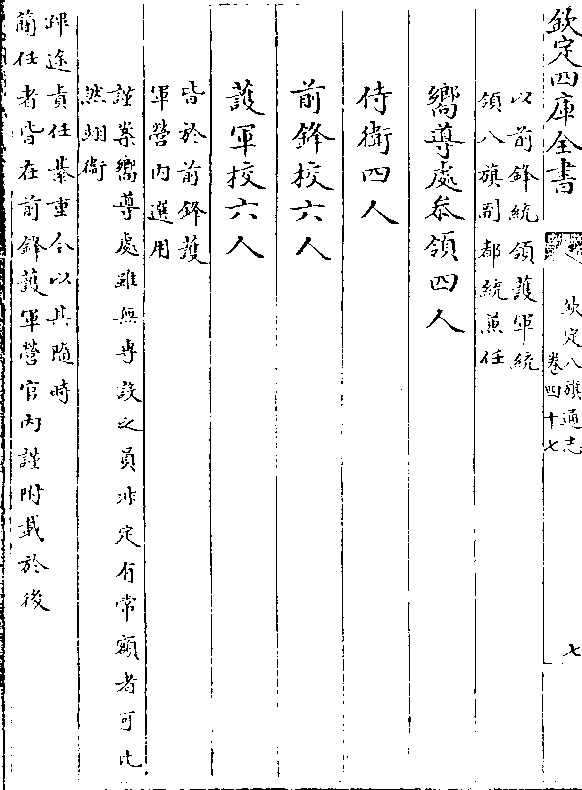 欽定四庫全書
欽定八旗通志
卷四十七
七
以前鋒統領護軍統
領八旗副都統兼任
嚮導處叅領四人
侍衛四人
前鋒校六人
護軍校六人
皆於前鋒護
軍營内選用
謹案嚮導處雖無專設之員非定有常額者可比
然翊衛
蹕途責任綦重今以其隨時
簡任者皆在前鋒護軍營官内謹附載於後